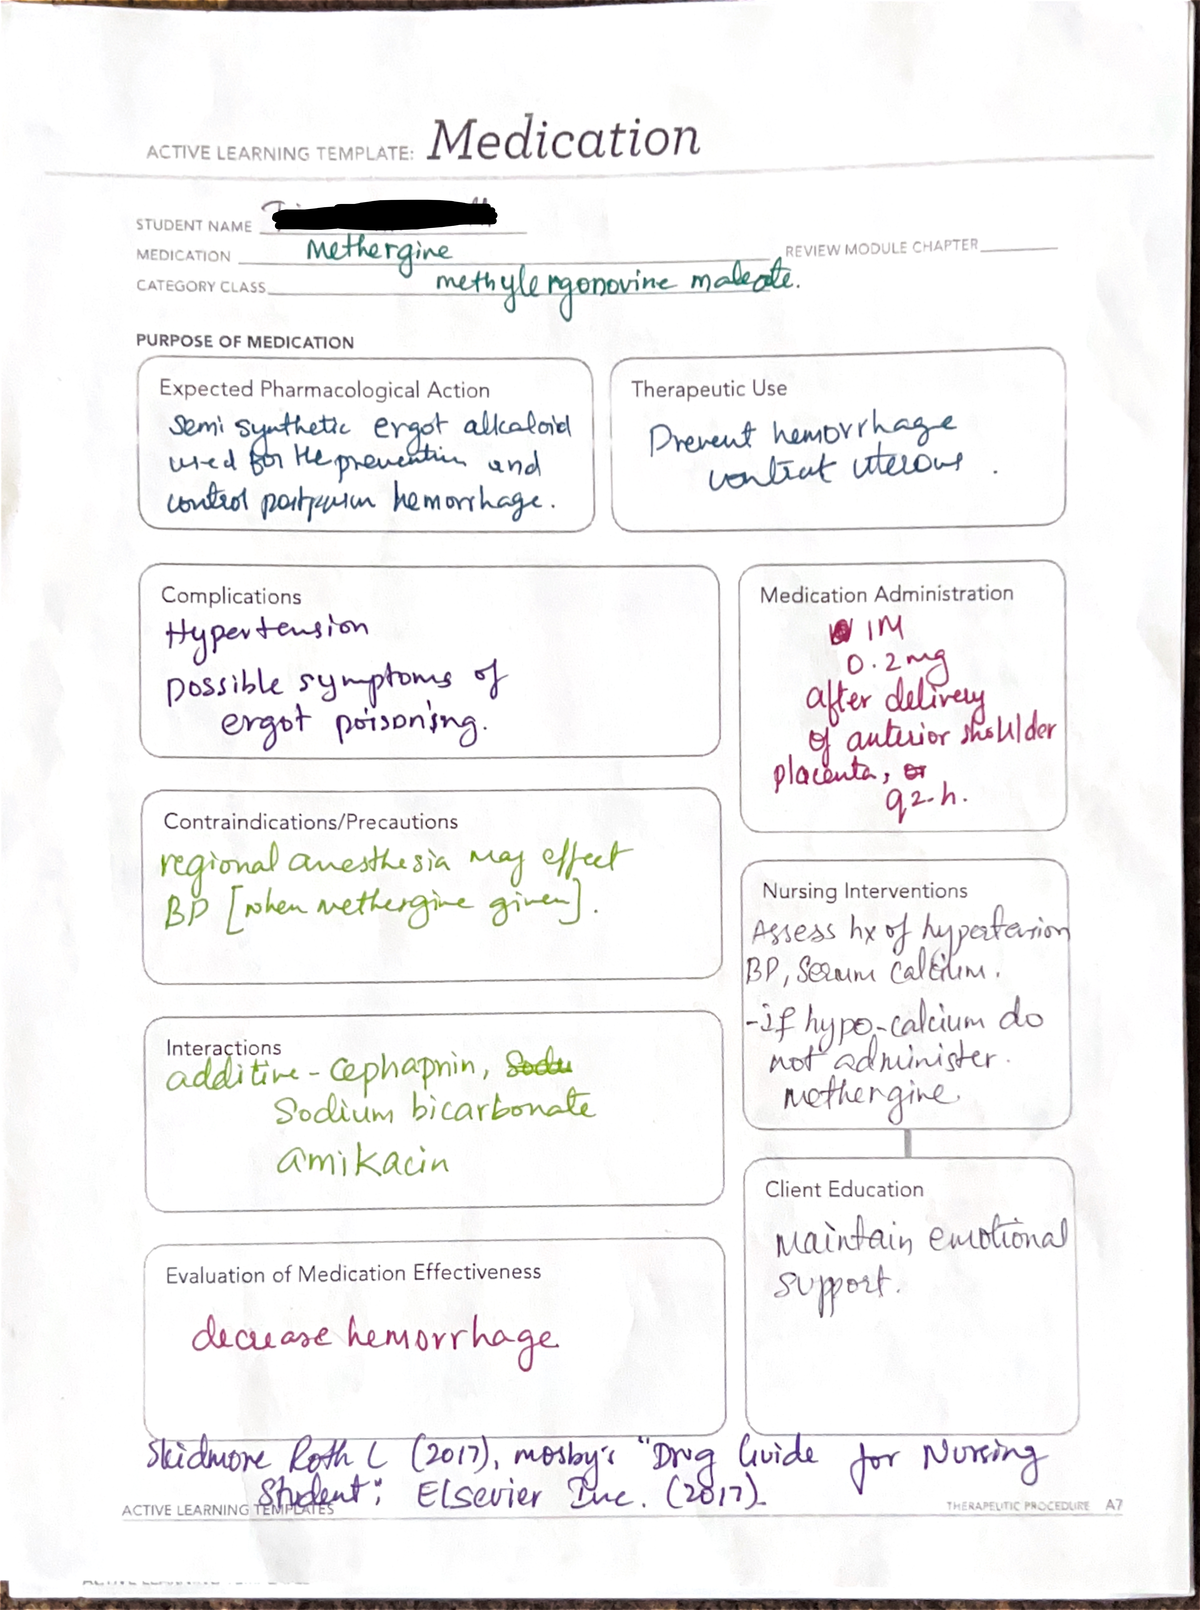 ACTIVE LEARNING TEMPLATE: Medication
STUDENT NAME
MEDICATION Methergine REVIEW MODULE CHAPTER
CATEGORY CLASS methylergonovine maleate.
PURPOSE OF MEDICATION
Expected Pharmacological Action
semi synthetic ergot alkaloid
used for the prevention and
control postpartum hemorrhage.
Therapeutic Use
Prevent hemorrhage
contract uterous .
Complications
Hypertension
possible symptoms of
ergot poisoning.
Medication Administration
IM
0.2mg
after delivery
of anterior shoulder
placenta, or
q2-h.
Contraindications/Precautions
regional anesthesia may effect
BP [when methergine given].
Nursing Interventions
Assess hx of hypertension
BP, Serum calcium.
-if hypo-calcium do
not administer.
methergine.
Interactions
additive - cephapnin,
Sodium bicarbonate
amikacin
Client Education
maintain emotional
support.
Evaluation of Medication Effectiveness
decrease hemorrhage
Skidmore Roth L (2017), mosby's "Drug Guide for Nursing
Student", Elsevier Inc. (2017)
ACTIVE LEARNING TEMPLATES THERAPEUTIC PROCEDURE A7